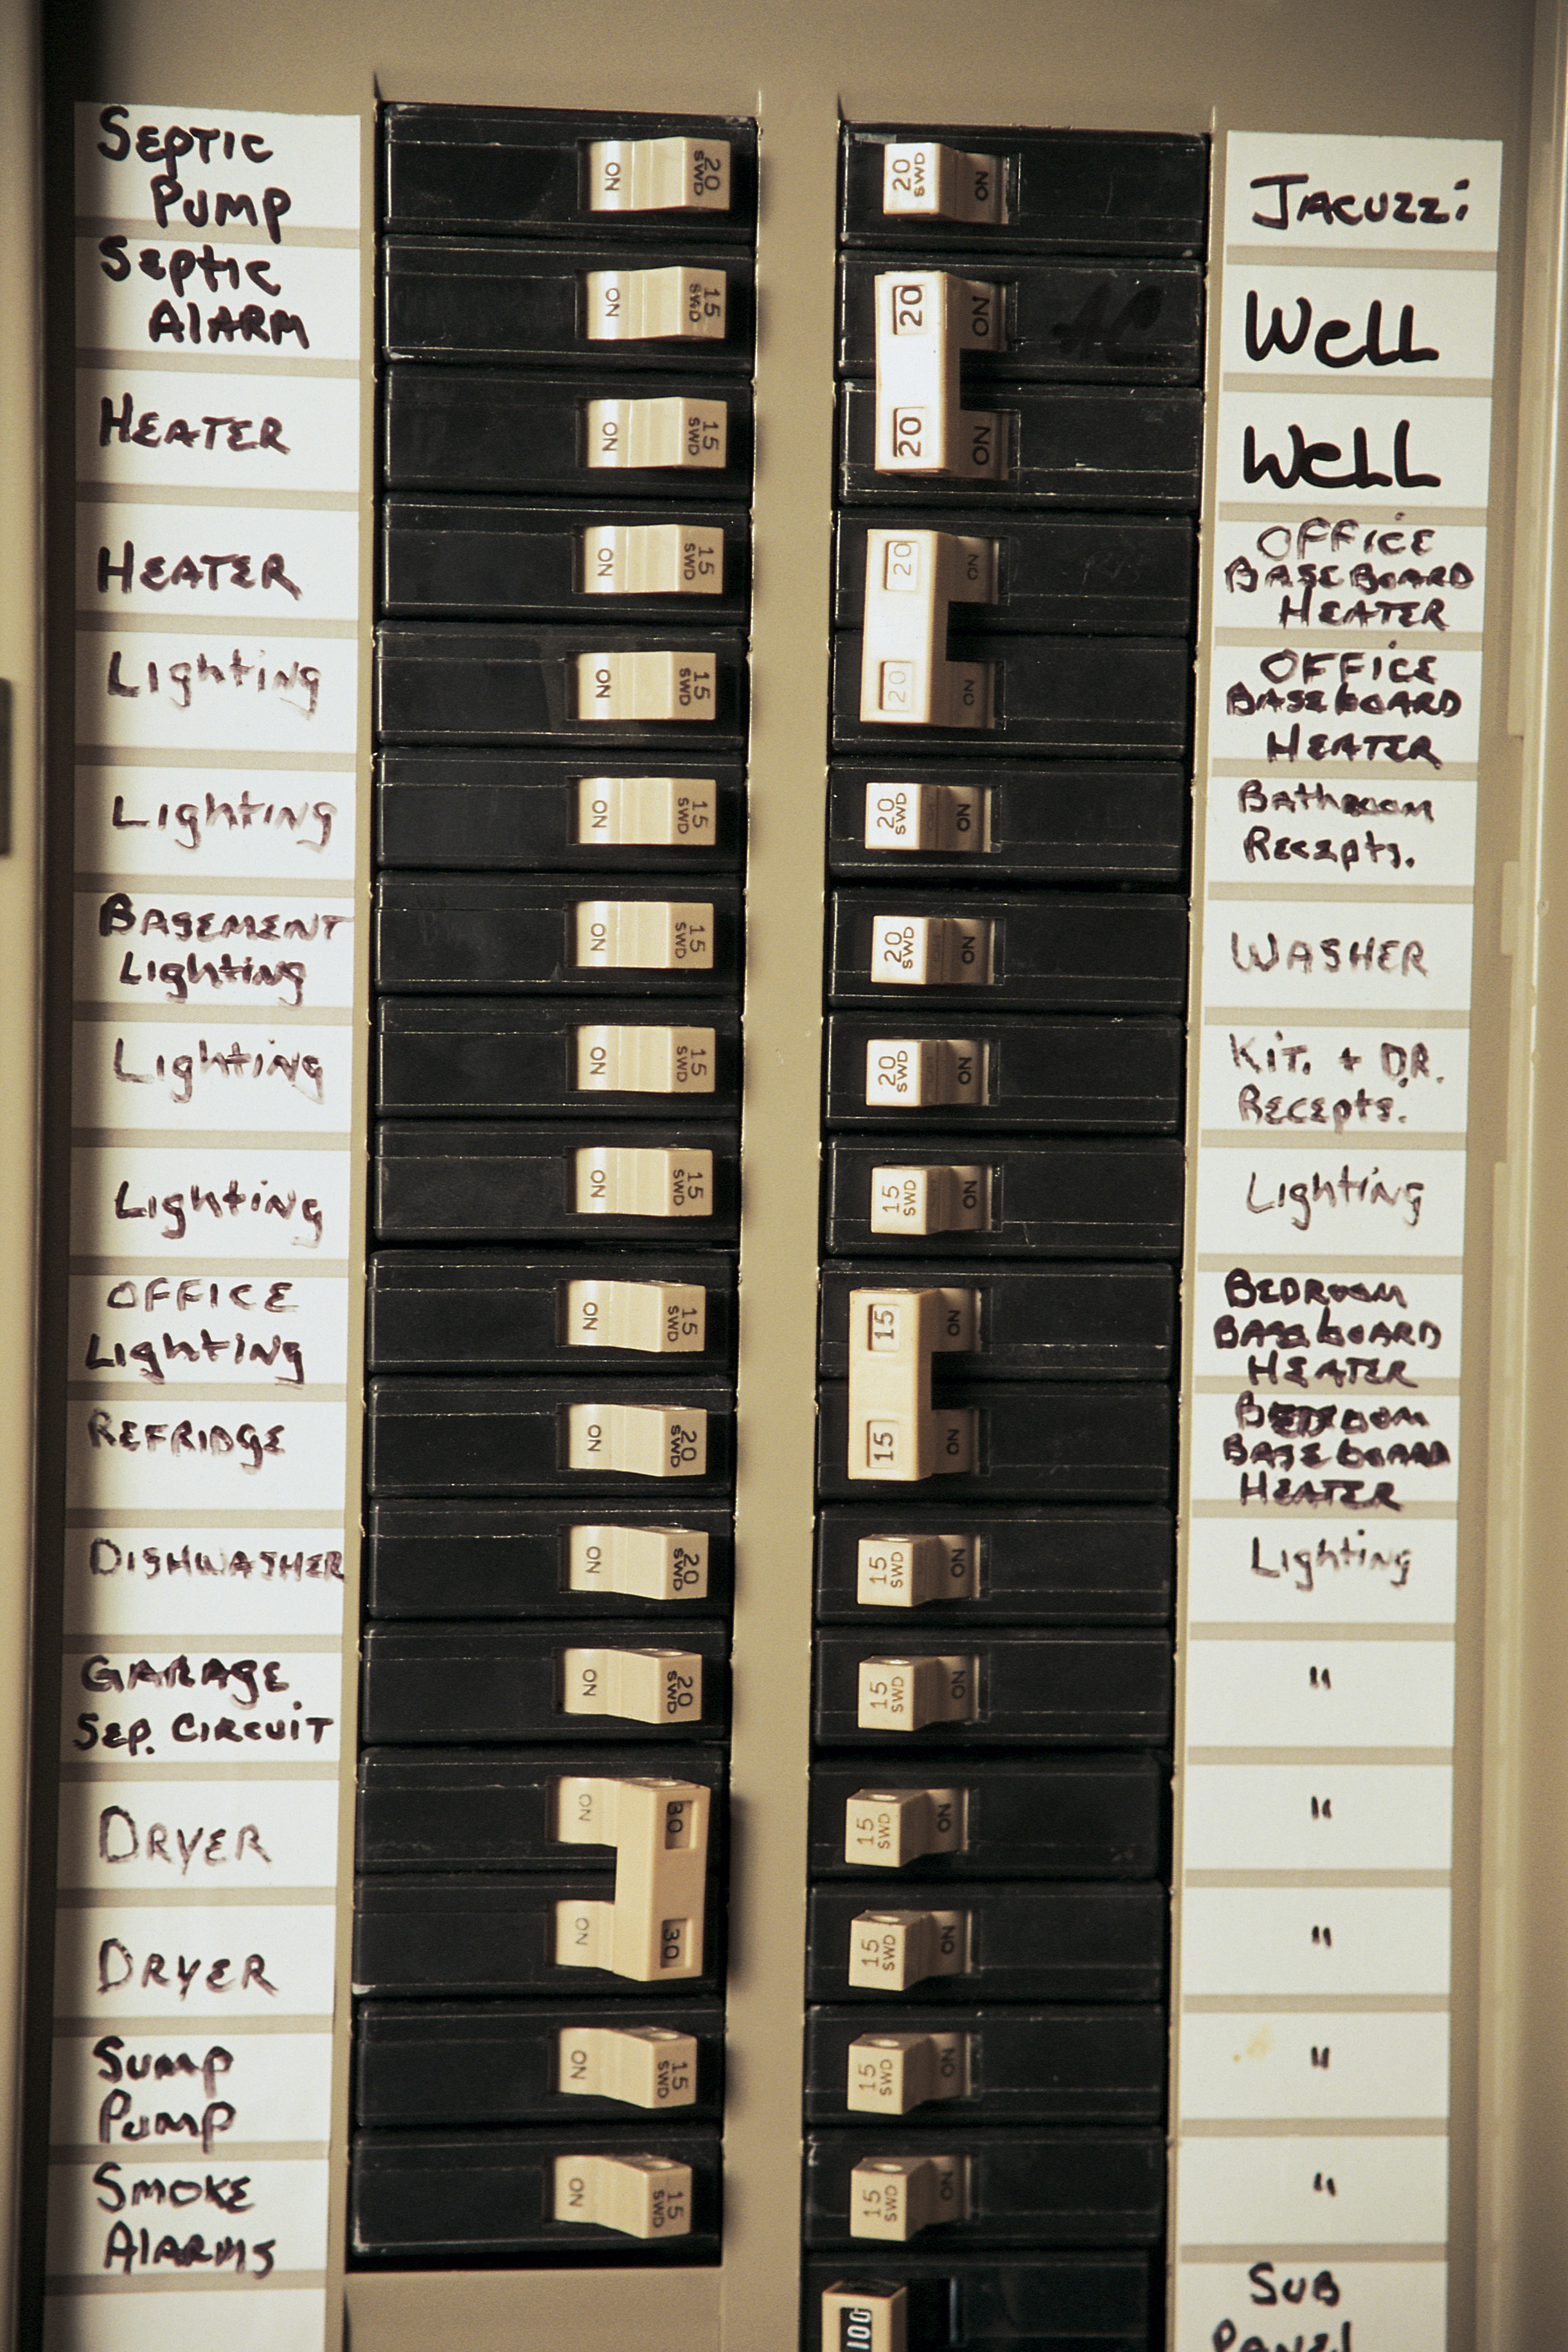 SEPTIC
PUMP
Septic
AlARM
HEATER
HEATER
Lighting
Lighting
BASEMENT
Lighting
Lighting
Lighting
OFFICE
Lighting
REFRIDGE
DISHWASHER
GARAGE
SEP. CIRCUIT
DRYER
DRYER
Sump
Pump
SMOKE
AlARMS
ON 20 SWD
ON 15 SWD
ON 15 SWD
ON 15 SWD
ON 15 SWD
ON 15 SWD
ON 15 SWD
ON 15 SWD
ON 15 SWD
ON 15 SWD
ON 20 SWD
ON 20 SWD
ON 20 SWD
ON 30
ON 30
ON 15 SWD
ON 15 SWD
20 SWD ON
20 ON AC
20 ON
20 ON
20 ON
20 SWD OFF ON
20 SWD OFF ON
20 SWD OFF ON
15 SWD ON
15 ON
15 ON
15 SWD ON
15 SWD ON
15 SWD ON
15 SWD ON
15 SWD ON
15 SWD ON
100
JACUZZi
WELL
WELL
OFFiCE
BASEBOARD
HEATER
OFFiCE
BASEbOARD
HEATER
Bathroom
Recepts.
WASHER
Kit. + D.R.
Recepts.
Lighting
BEDROOM
BASEbOARD
HEATER
BEDROOM
BASEbOARD
HEATER
Lighting
"
"
"
"
"
SUB
PANEL